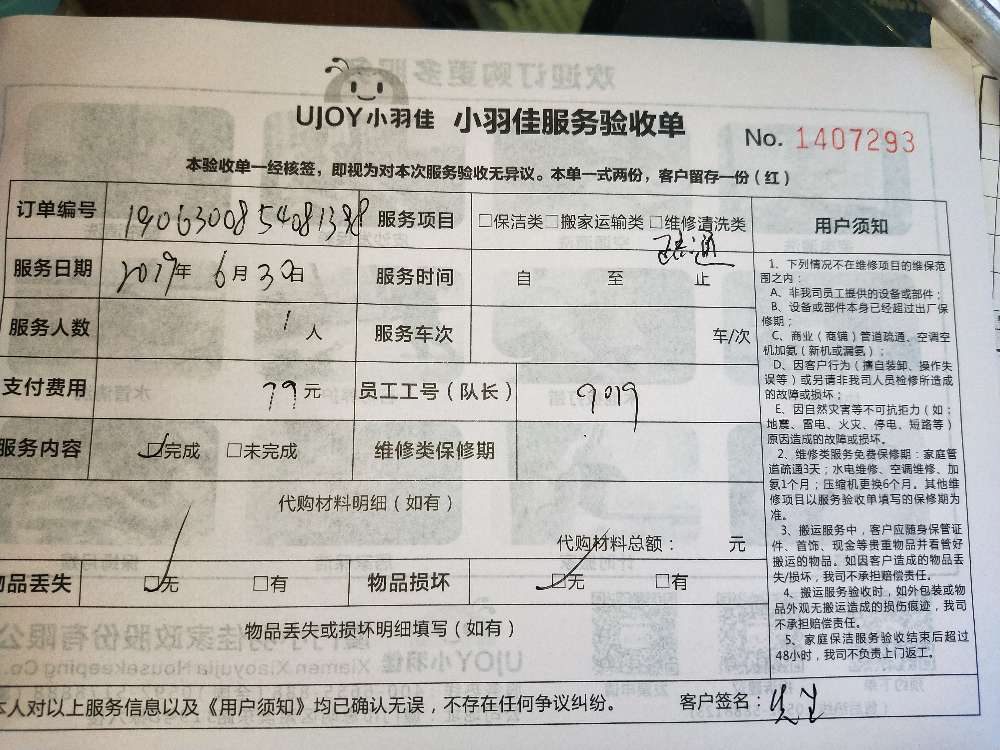 UJOY小羽佳 小羽佳服务验收单
No. 1407293
本验收单一经核签，即视为对本次服务验收无异议。本单一式两份，客户留存一份（红）
订单编号 1906300854081398 服务项目 □保洁类□搬家运输类 □维修清洗类
疏通
服务日期 2019年 6月30日 服务时间 自 至 止
服务人数 1 人 服务车次 车/次
支付费用 79元 员工工号（队长） 9019
服务内容 ☑完成 □未完成 维修类保修期
代购材料明细（如有）
代购材料总额： 元
物品丢失 ☑无 □有 物品损坏 ☑无 □有
物品丢失或损坏明细填写（如有）
本人对以上服务信息以及《用户须知》均已确认无误，不存在任何争议纠纷。 客户签名：
用户须知
1、下列情况不在维修项目的维保范
围之内：
A、非我司员工提供的设备或部件；
B、设备或部件本身已经超过出厂保
修期；
C、商业（商铺）管道疏通、空调空
机加氨（新机或漏氨）；
D、因客户行为（擅自装卸、操作失
误等）或另请非我司人员检修所造成
的故障或损坏；
E、因自然灾害等不可抗拒力（如：
地震、雷电、火灾、停电、短路等）
原因造成的故障或损坏。
2、维修类服务免费保修期：家庭管
道疏通3天；水电维修、空调维修、加
氨1个月；压缩机更换6个月。其他维
修项目以服务验收单填写的保修期为
准。
3、搬运服务中，客户应随身保管证
件、首饰、现金等贵重物品并看管好
搬运的物品。如因客户造成的物品丢
失/损坏，我司不承担赔偿责任。
4、搬运服务验收时，如外包装或物
品外观无搬运造成的损伤痕迹，我司
不承担赔偿责任。
5、家庭保洁服务验收结束后超过
48小时，我司不负责上门返工。